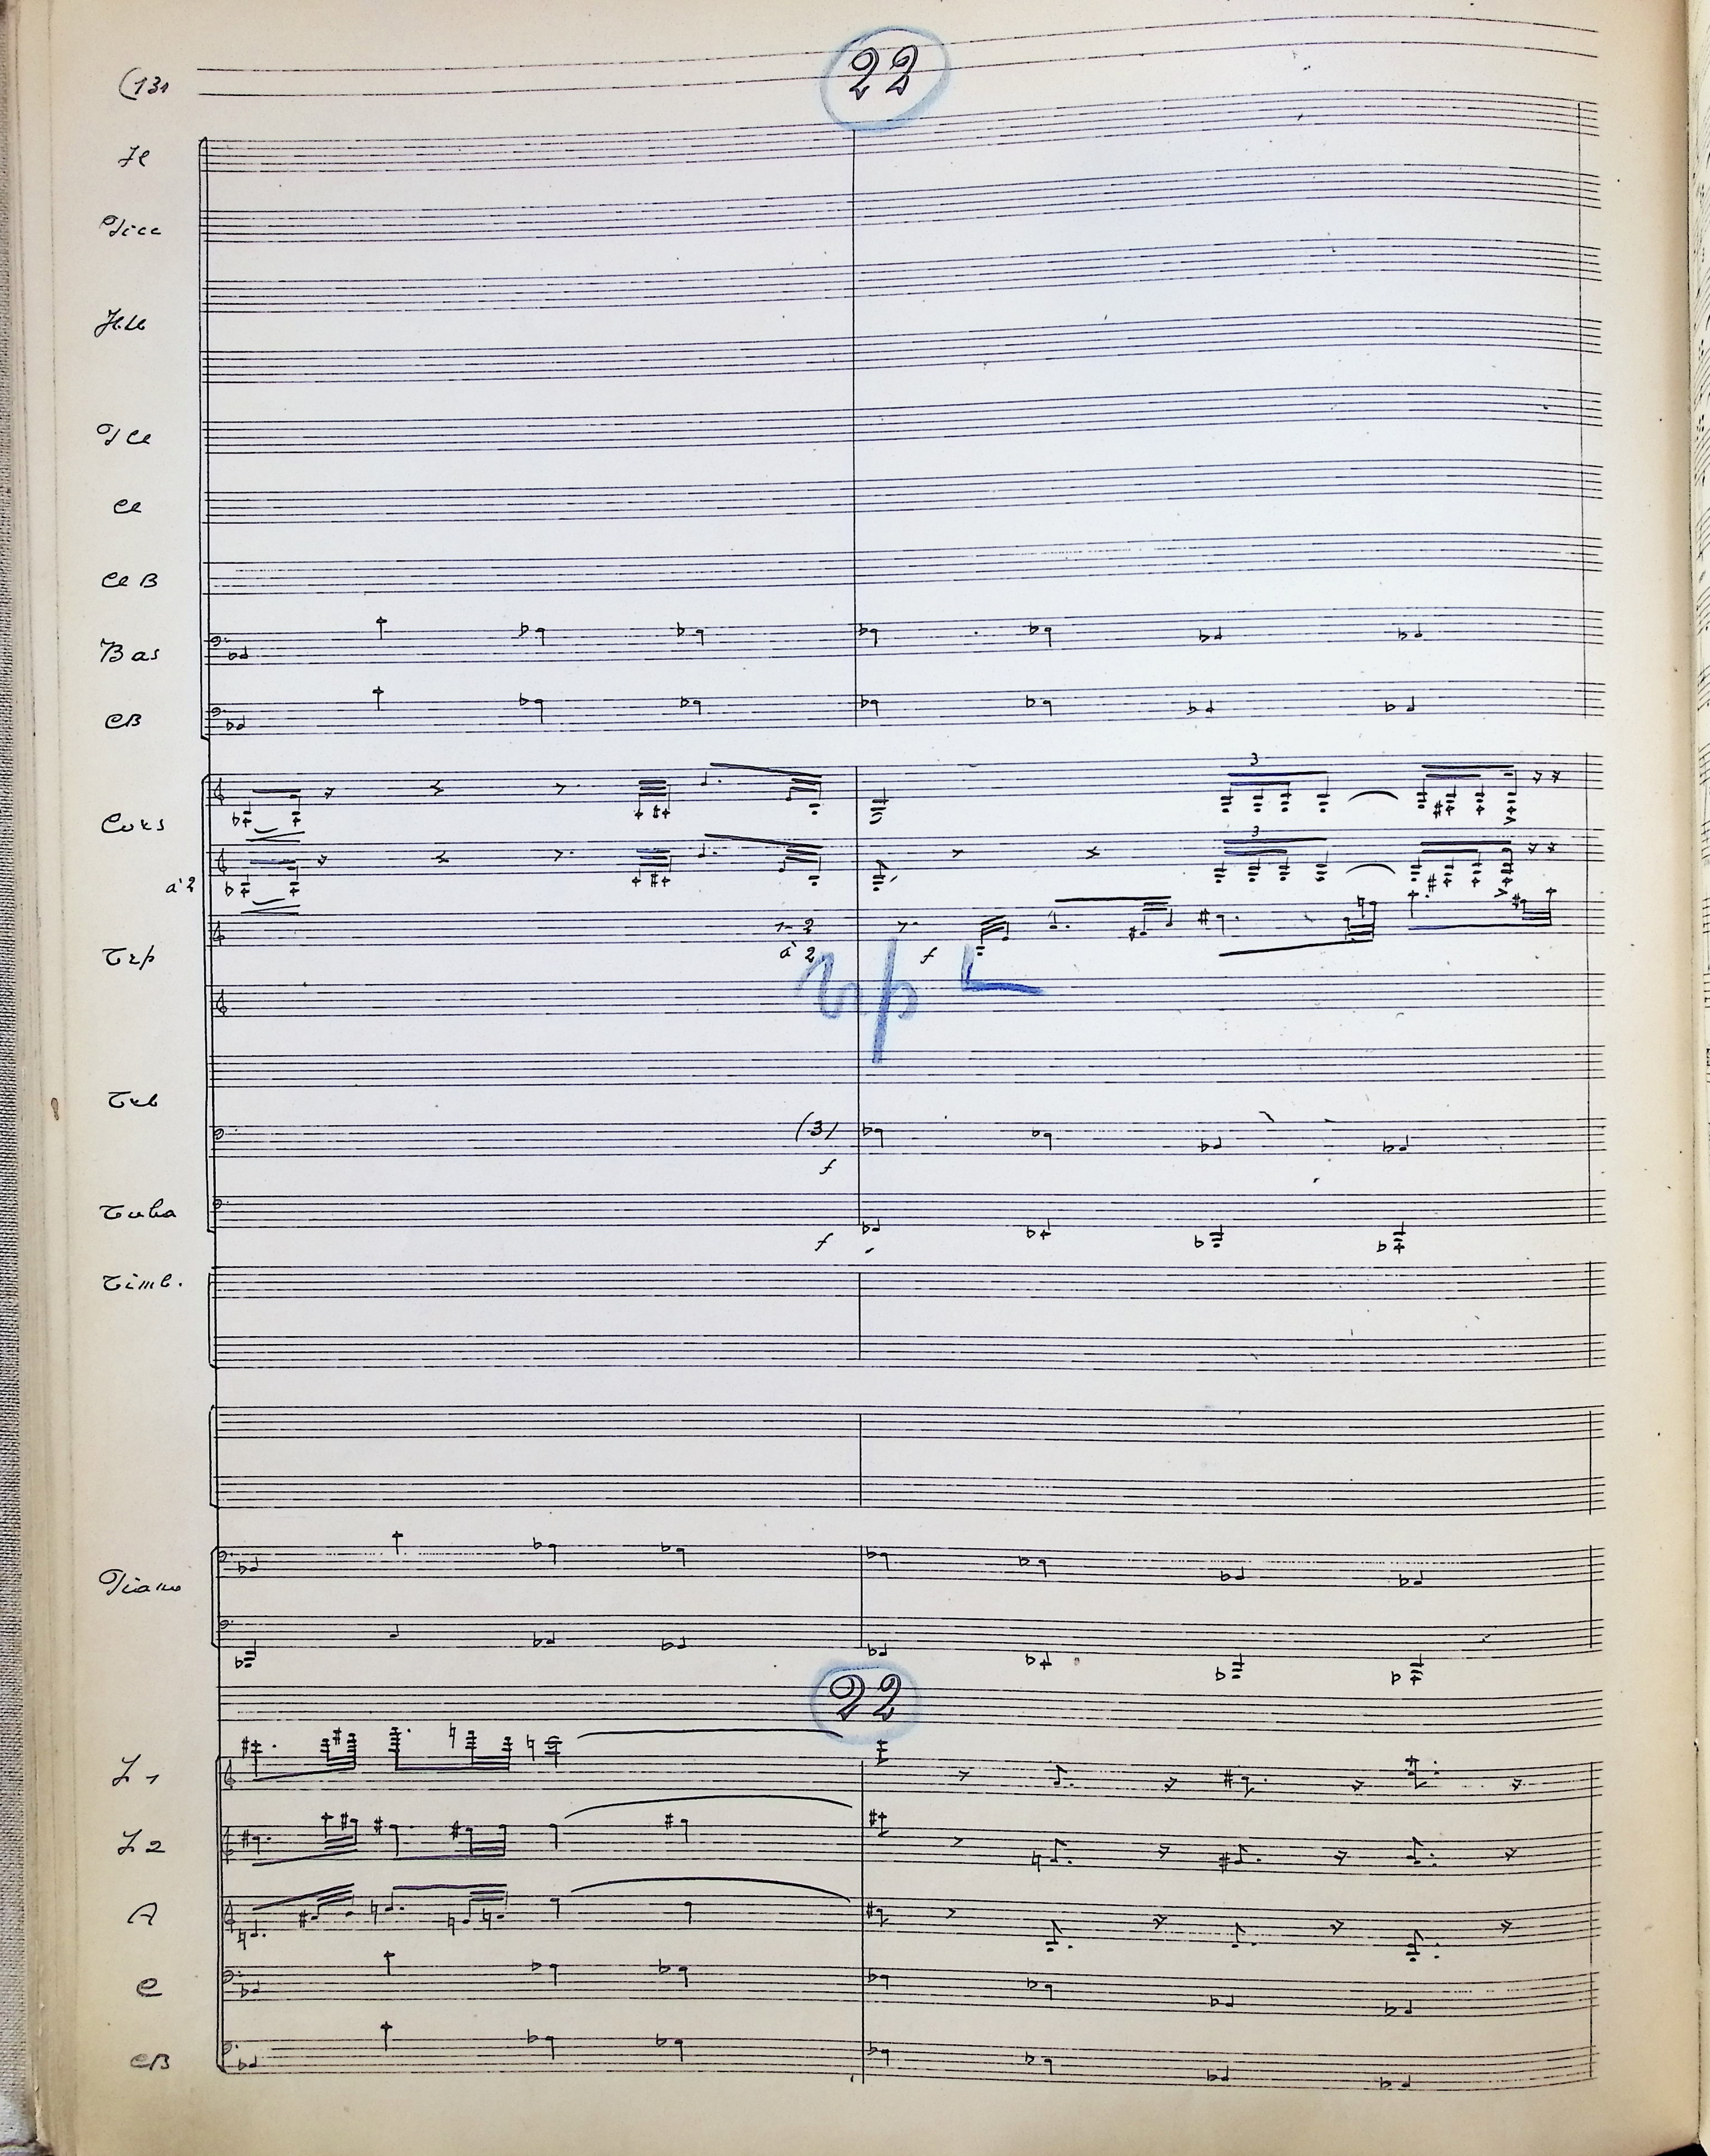 22
(131
Fl
Picc
Htb
P Cl
Cl
Cl B
Bas
CB
3
Cors
3
à 2
1-2
Trp
à 2
f
Trp
Trb
(3)
f
Tuba
f
Timb.
Piano
22
V 1
V 2
A
C
CB